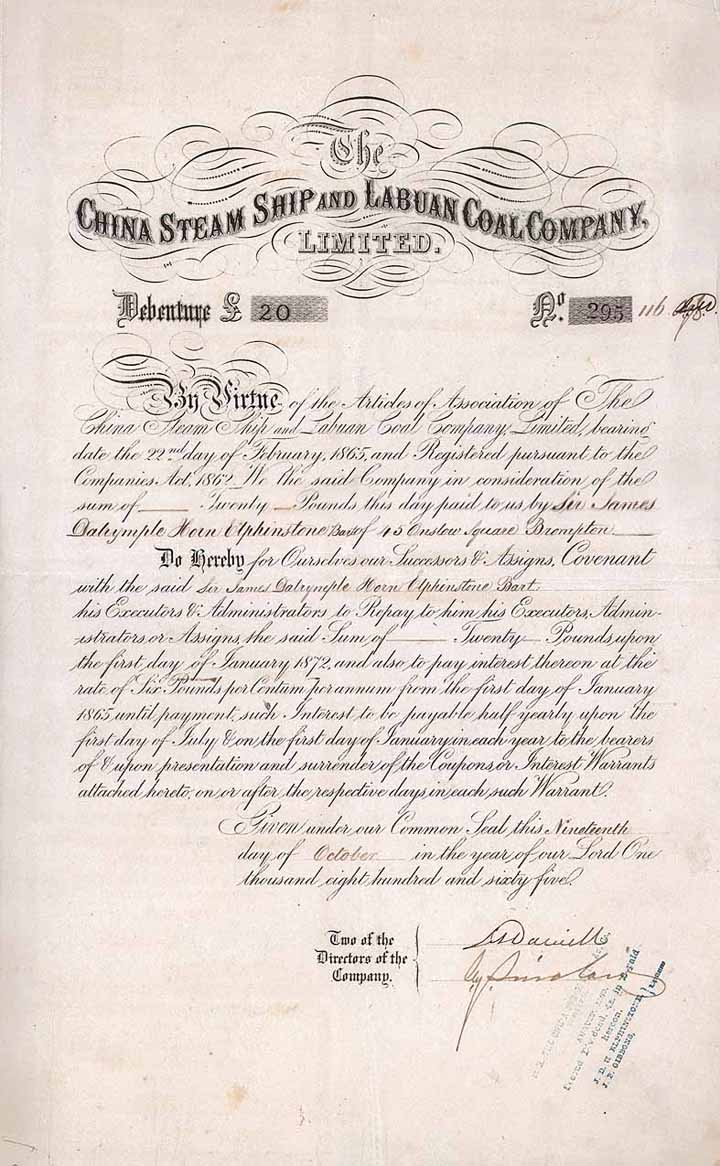 The
CHINA STEAM SHIP AND LABUAN COAL COMPANY,
LIMITED.
Debenture £ 20
No. 295 116
By Virtue of the Articles of Association of The
China Steam Ship and Labuan Coal Company, Limited, bearing
date the 22nd day of February, 1865, and Registered pursuant to the
Companies Act, 1862. We the said Company in consideration of the
sum of Twenty Pounds this day paid to us by Sir James
Dalrymple Horn Elphinstone Bart of 45 Onslow Square Brompton
Do Hereby for Ourselves our Successors & Assigns, Covenant
with the said Sir James Dalrymple Horn Elphinstone Bart
his Executors & Administrators to Repay to him his Executors, Admin-
istrators or Assigns, the said Sum of Twenty Pounds upon
the first day of January 1872, and also to pay interest thereon at the
rate of Six Pounds per Centum per annum from the first day of January
1865 until payment, such Interest to be payable half yearly upon the
first day of July & on the first day of January in each year to the bearers
of & upon presentation and surrender of the Coupons, or Interest Warrants
attached hereto, on or after the respective days in each such Warrant.
Given under our Common Seal this Nineteenth
day of October in the year of our Lord One
thousand eight hundred and sixty five.
Two of the
Directors of the
Company.
Dividend, &c. in
J. D. H. ELPHINSTONE,
J. F. GIBBONS,